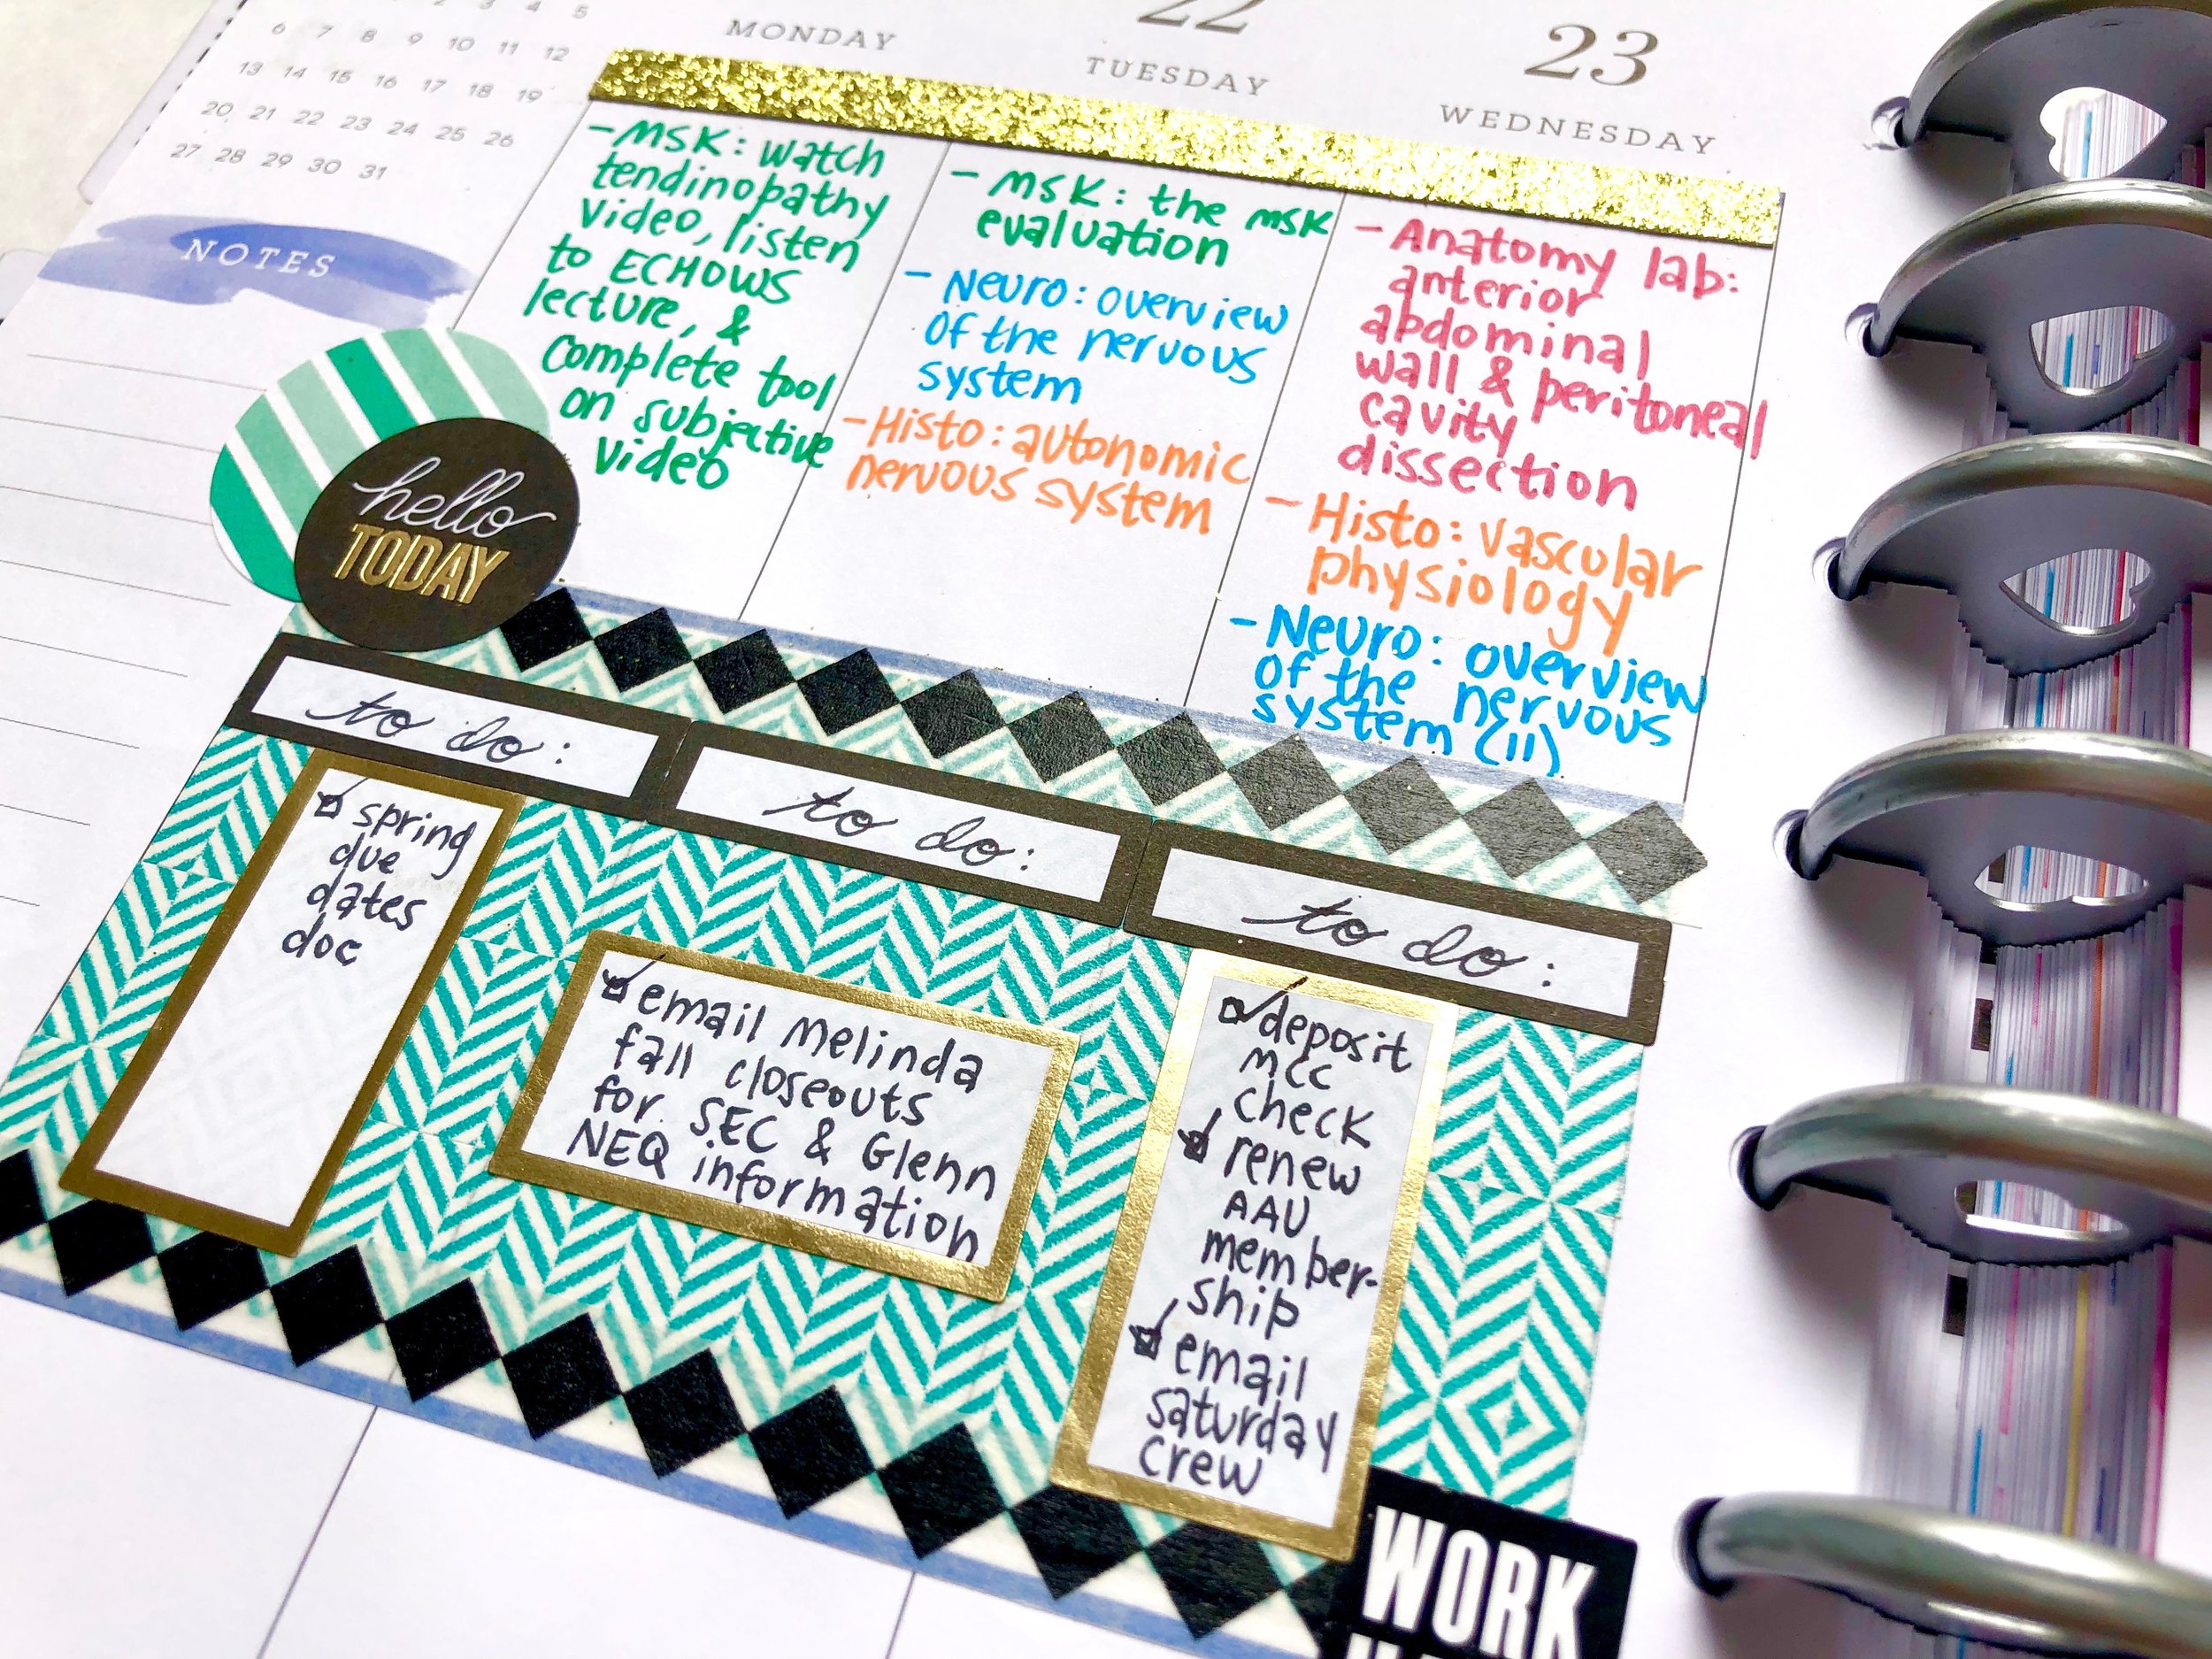 2 3 4 5
6 7 8 9 10 11 12
13 14 15 16 17 18 19
20 21 22 23 24 25 26
27 28 29 30 31
NOTES
MONDAY
22
TUESDAY
23
WEDNESDAY
- MSK: watch
tendinopathy
video, listen
to ECHOWS
lecture, &
complete tool
on subjective
video
- MSK: the MSK
evaluation
- Neuro: overview
of the nervous
system
- Histo: autonomic
nervous system
- Anatomy lab:
anterior
abdominal
wall & peritoneal
cavity
dissection
- Histo: vascular
physiology
- Neuro: overview
of the nervous
system (II)
hello
TODAY
to do:
spring
due
dates
doc
to do:
email Melinda
fall closeouts
for SEC & Glenn
NEQ information
to do:
deposit
MCC
check
renew
AAU
member-
ship
email
saturday
crew
WORK